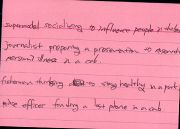 supermodel socialising to influence people in
journalist preparing a presentation to
personal illness in a cab.
fisherman thinking to stay healthy in a park.
police officer finding a lost phone in a cab